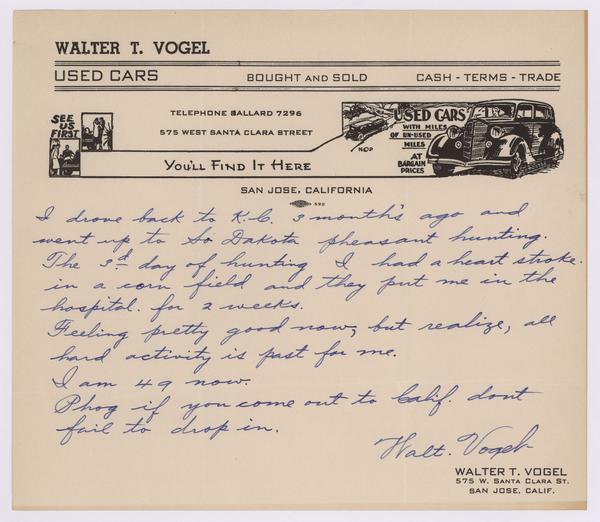 WALTER T. VOGEL
USED CARS BOUGHT AND SOLD CASH - TERMS - TRADE
SEE US FIRST
TELEPHONE BALLARD 7296
575 WEST SANTA CLARA STREET
YOU'LL FIND IT HERE
USED CARS
WITH MILES
OF UN-USED
MILES
AT
BARGAIN
PRICES
SAN JOSE, CALIFORNIA
I drove back to K.C. 3 month's ago and
went up to So Dakota pheasant hunting.
The 3rd day of hunting I had a heart stroke.
in a corn field and they put me in the
hospital. for 2 weeks.
Feeling pretty good now, but realize, all
hard activity is past for me.
I am 49 now.
Phog if you come out to Calif. dont
fail to drop in.
Walt. Vogel
WALTER T. VOGEL
575 W. SANTA CLARA ST.
SAN JOSE, CALIF.